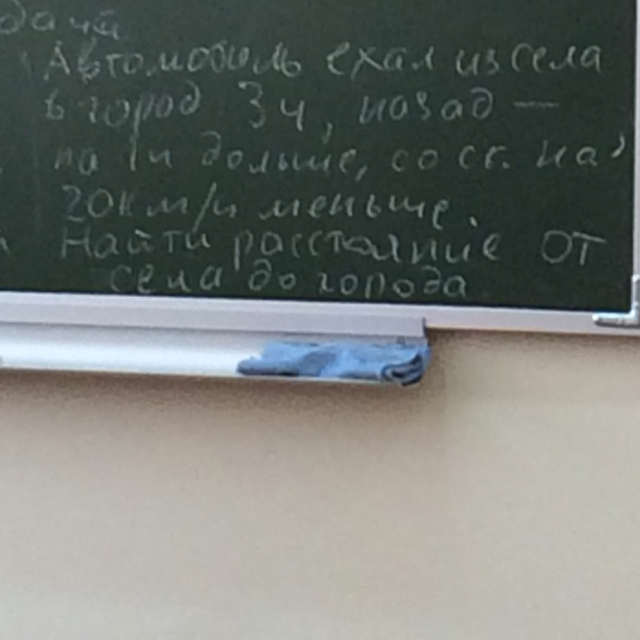 дача
Автомобиль ехал из села
в город 3ч, назад —
на 1ч дольше, со ск. на
20км/ч меньше.
Найти расстояние от
села до города